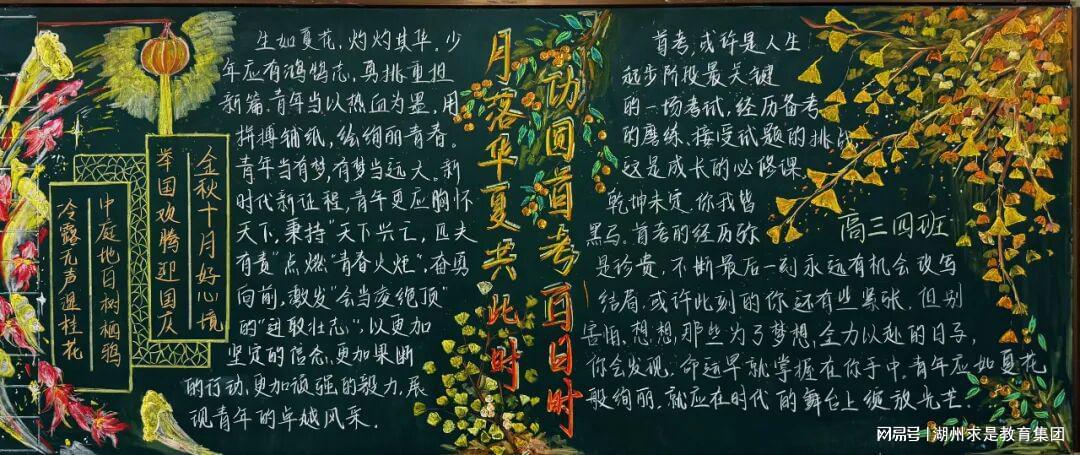 金秋十月好心境
举国欢腾迎国庆
中庭地白树栖鸦
冷露无声湿桂花
生如夏花,灼灼其华。少
年应有鸿鹄志,勇挑重担
新篇。青年当以热血为墨,用
拼搏铺纸,绘绚丽青春。
青年当有梦,有梦当远大。新
时代新征程,青年更应胸怀
天下,秉持“天下兴亡,匹夫
有责”点燃“青春火炬”,奋勇
向前,激发“会当凌绝顶”
的“进取壮志”,以更加
坚定的信念,更加果断
的行动,更加顽强的毅力,展
现青年的卓越风采.
月落华夏共此时
协圆首考百日时
首考,或许是人生
起步阶段最关键
的一场考试,经历备考
的磨练、接受试题的挑战
这是成长的必修课.
乾坤未定,你我皆
黑马。首考的经历弥
是珍贵,不断最后一刻永远有机会改写
结局.或许此刻的你还有些紧张,但别
害怕,想想,那些为了梦想,全力以赴的日子,
你会发现,命运早就掌握在你手中.青年应如夏花
般绚丽,就应在时代的舞台上绽放光芒.
高三四班
网易号 | 湖州求是教育集团